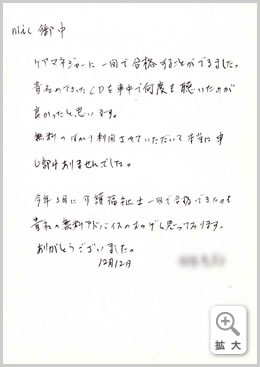 nlic 御中
ケアマネジャーに一回で合格することができました。
貴社のテストCDを車中で何度も聴いたのが
良かったと思います。
無料のばかり利用させていただいて本当に申
し訳ありませんでした。
今年3月に介護福祉士一回で合格できたのも
貴社の無料アドバイスのおかげと思っております。
ありがとうございました。
12月12日
拡大